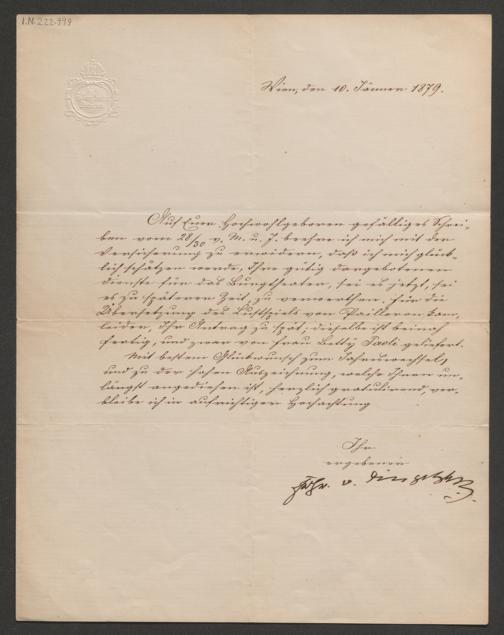 I.N. 222.999
Wien, den 10. Jänner 1879.
Auf Euer Hochwohlgeboren gefälliges Schrei-
ben vom 28/30 v. M. u. J. beehre ich mich mit der
Versicherung zu erwiedern, daß ich mich glück-
lich schätzen werde, Ihre gütig dargebotenen
Dienste für das Burgtheater, sei es jetzt, sei
es zu späterer Zeit, zu verwerthen. Für die
Übersetzung des Lustspiels von Pailleron kam,
leider, Ihr Antrag zu spät; dieselbe ist beinah
fertig, und zwar von Frau Betty Paoli geliefert.
Mit bestem Glückwunsch zum Jahreswechsel,
und zu der hohen Auszeichnung, welche Ihnen un-
längst angediehen ist, herzlich gratulirend, ver-
bleibe ich in aufrichtiger Hochachtung
Ihr
ergebener
Frhr. v. Dingelstedt